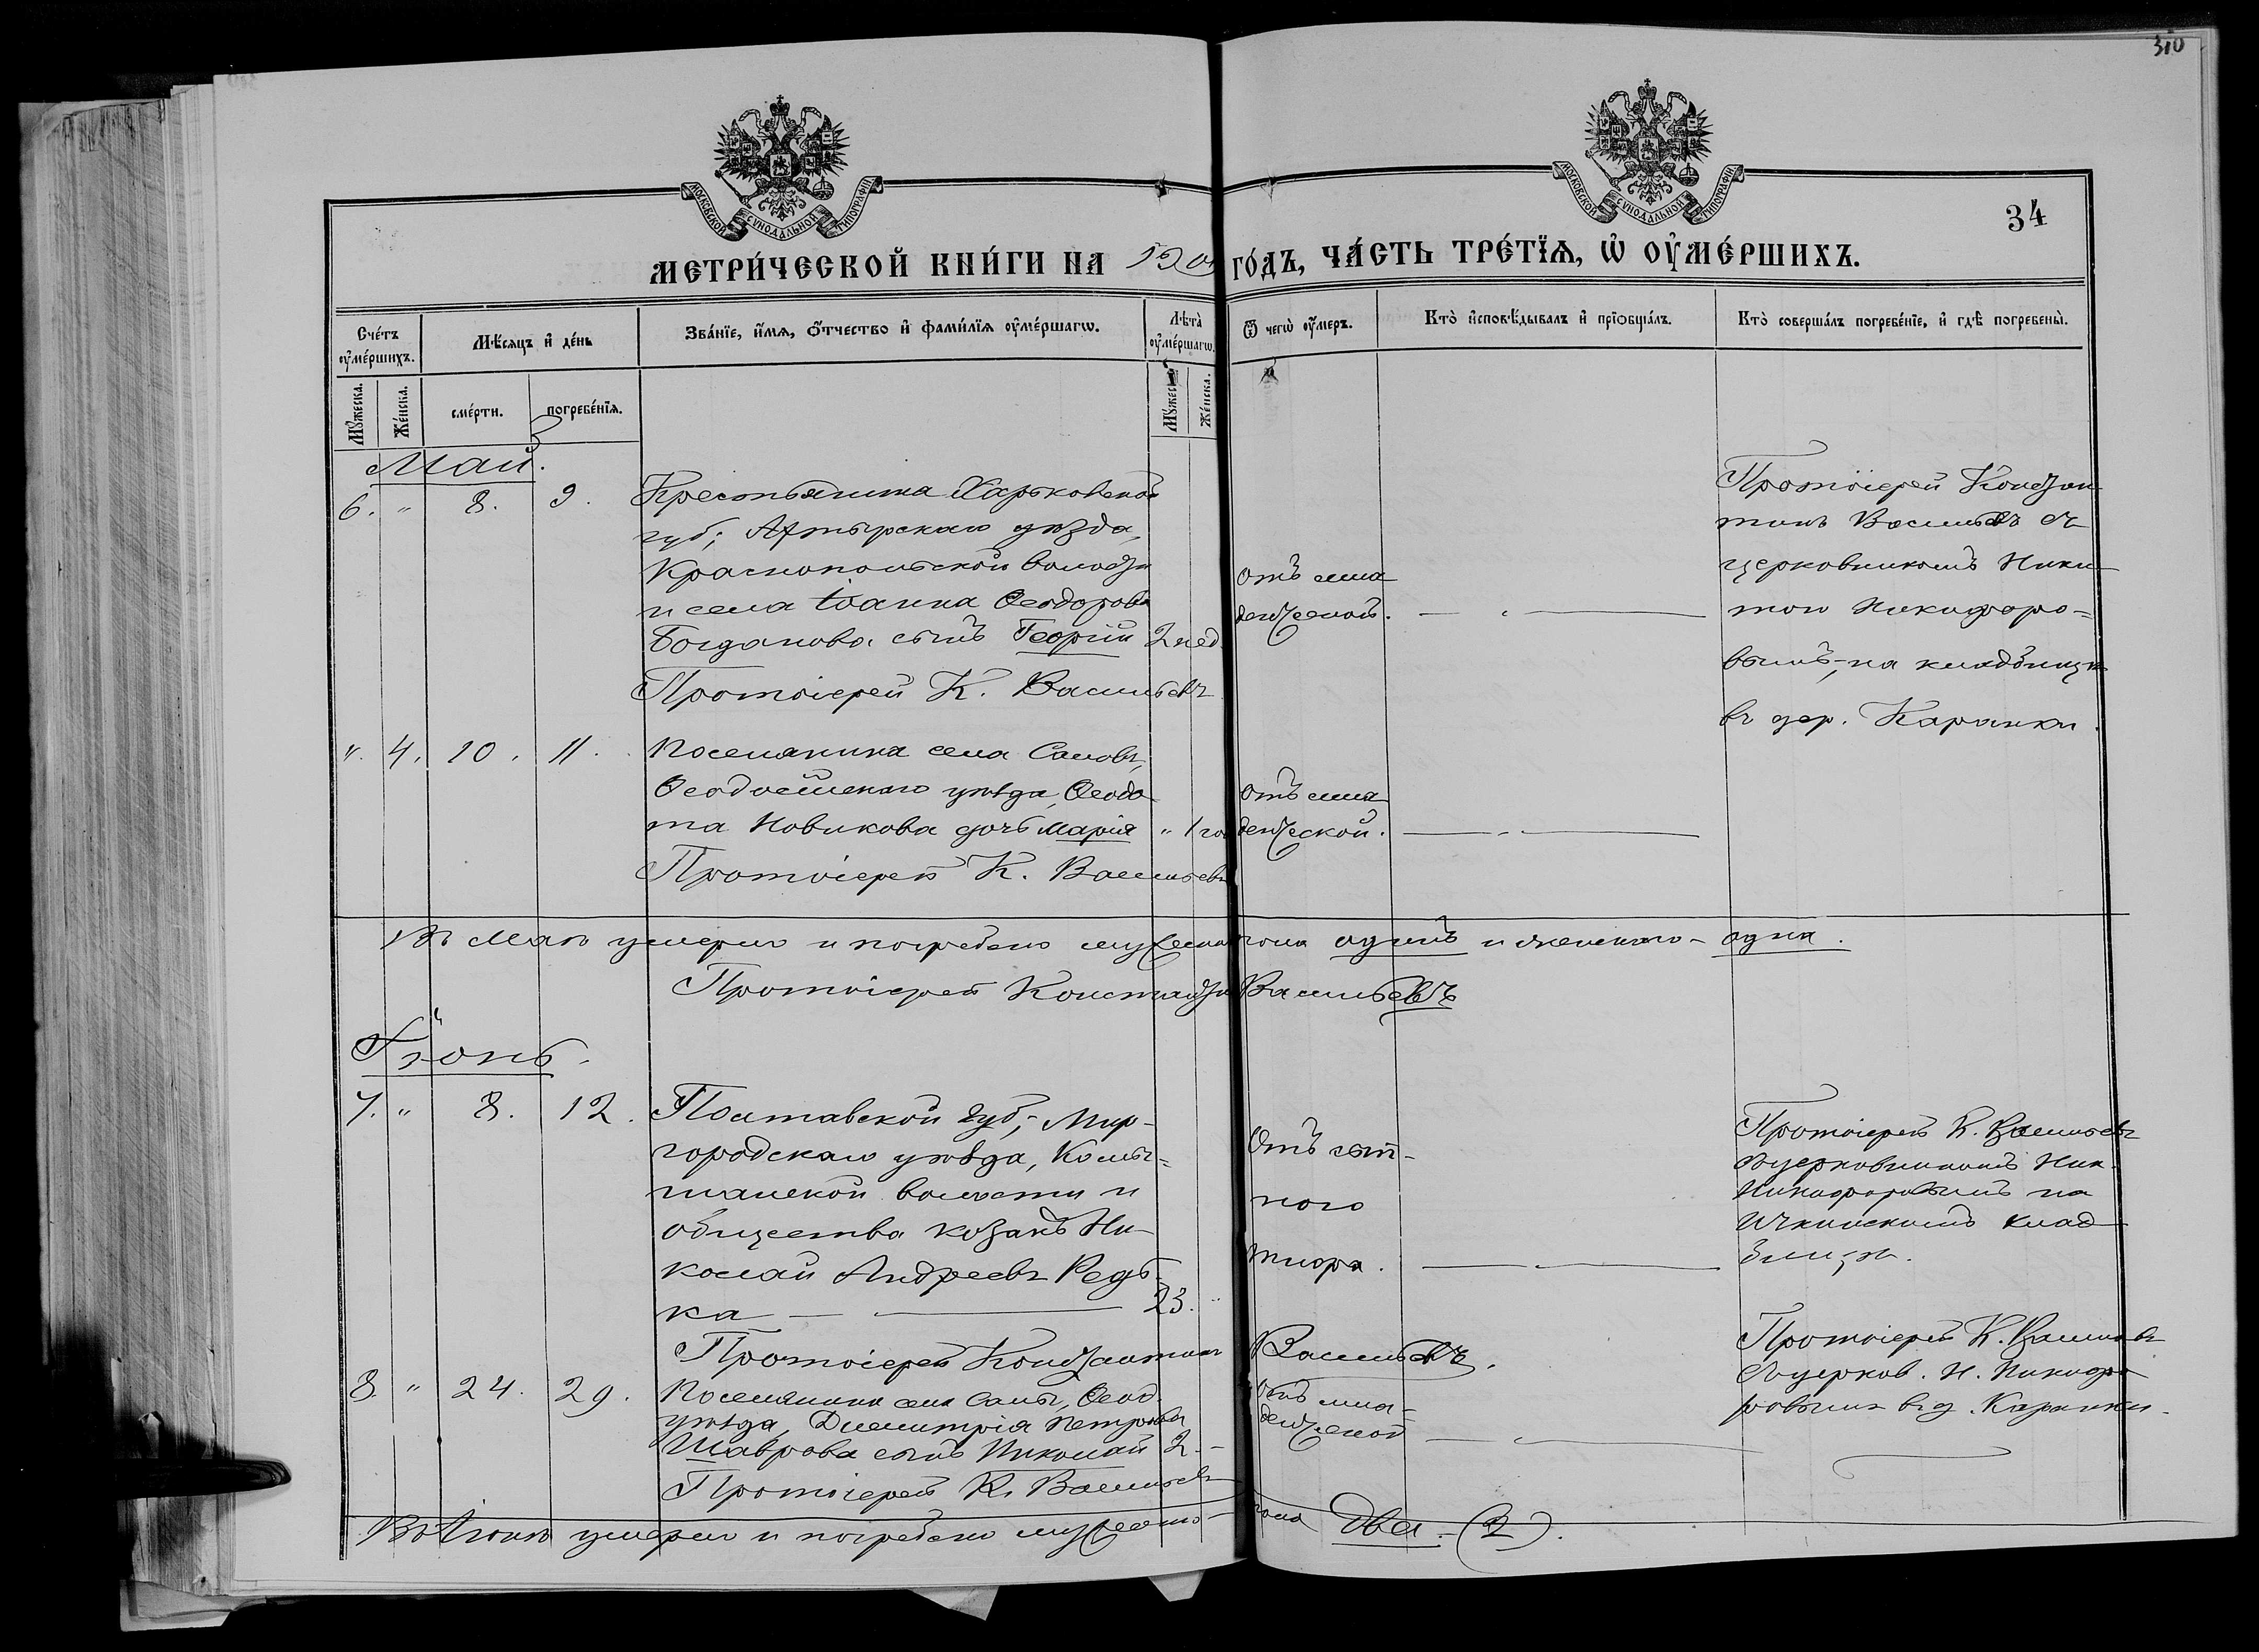 310
34
МОСКОВСКОЙ СѴНОДАЛЬНОЙ ТИПОГРАФІИ
МОСКОВСКОЙ СѴНОДАЛЬНОЙ ТИПОГРАФІИ
МЕТРИ́ЧЕСКОЙ КНИ́ГИ НА 190 ГО́ДЪ, ЧА́СТЬ ТРЕ́ТЇѦ, Ѡ҆ ОУ҆МЕ́РШИХЪ.
Сче́тъ оу҆ме́ршихъ.
Мѣ́сяцъ и҆ де́нь
Зва́нїе, и҆́мѧ, ѻ҆́тчество и҆ фами́лїѧ оу҆ме́ршагѡ.
Лѣ́та оу҆ме́ршагѡ.
Ѿ чегѡ̀ оу҆́меръ.
Кто̀ и҆сповѣ́дывалъ и҆ прїѻбща́лъ.
Кто̀ соверша́лъ погребе́нїе, и҆ гдѣ̀ погребены̀.
Мꙋ́жеска.
Же́нска.
сме́рти.
погребе́нїѧ.
Мꙋ́жеска.
Же́нска.
Май.
6. " 8. 9.
Крестьянина Харьковской
губ; Ахтырскаго уѣзда,
Краснопольской волости
и села Іоанна Ѳеодорова
Богданова сынъ Георгій 2 нед.
Протоіерей К. Васильевъ
отъ мла
денческой.
Протоіерей Констан
тинъ Васильевъ съ
церковникомъ Ники
тою Никифоро=
вымъ, на кладбищѣ
въ дер. Каранки.
". 4. 10. 11.
Поселянина села Саловъ,
Ѳеодосійскаго уѣзда, Ѳеодо
та Новикова дочь Марія " 1 год
Протоіерей К. Васильевъ
отъ мла
денческой.
Въ Маѣ умерло и погребено мужескаго пола одинъ и женскаго - одна.
Протоіерей Константинъ Васильевъ
Іюнь.
7. " 8. 12.
Полтавской губ; Мир-
городскаго уѣзда, Комы=
шанской волости и
общества козакъ Ни-
колай Андреевъ Редь-
ка 23. "
Протоіерей Константинъ Васильевъ.
Отъ сып-
ного
тифа.
Протоіерей К. Васильевъ
съ церковникомъ Ник.
Никифоровымъ на
Ичкинскомъ клад
бищѣ.
8. " 24. 29.
Поселянина села Салы, Ѳеод.
уѣзда, Димитрія Петрова
Шаврова сынъ Николай 2.
Протоіерей К. Васильевъ
Отъ мла-
денческой
Протоіерей К. Васильевъ
съ церков. Н. Никифо
ровымъ въ д. Каранки.
Въ Іюнѣ умерло и погребено мужескаго пола два. (2).